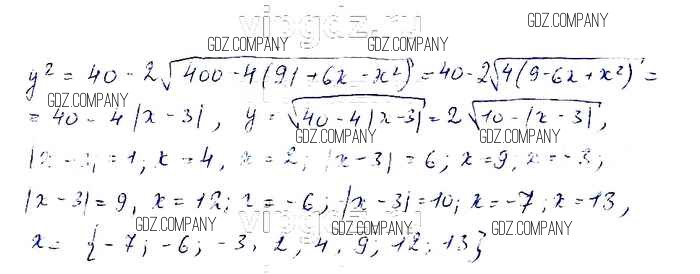 vipgdz.ru
GDZ.COMPANY GDZ.COMPANY GDZ.COMPANY
y² = 40 - 2√(400 - 4(91 + 6x - x²)) = 40 - 2√(4(9 - 6x + x²)) =
GDZ.COMPANY
= 40 - 4|x - 3|, y = √(40 - 4|x - 3|) = 2√(10 - |x - 3|),
GDZ.COMPANY GDZ.COMPANY
|x - 3| = 1; x = 4, x = 2; |x - 3| = 6; x = 9, x = -3;
GDZ.COMPANY GDZ.COMPANY
|x - 3| = 9, x = 12; x = -6; |x - 3| = 10; x = -7; x = 13,
vipgdz.ru
GDZ.COMPANY GDZ.COMPANY
x = {-7; -6; -3, 2, 4, 9; 12; 13}
GDZ.COMPANY